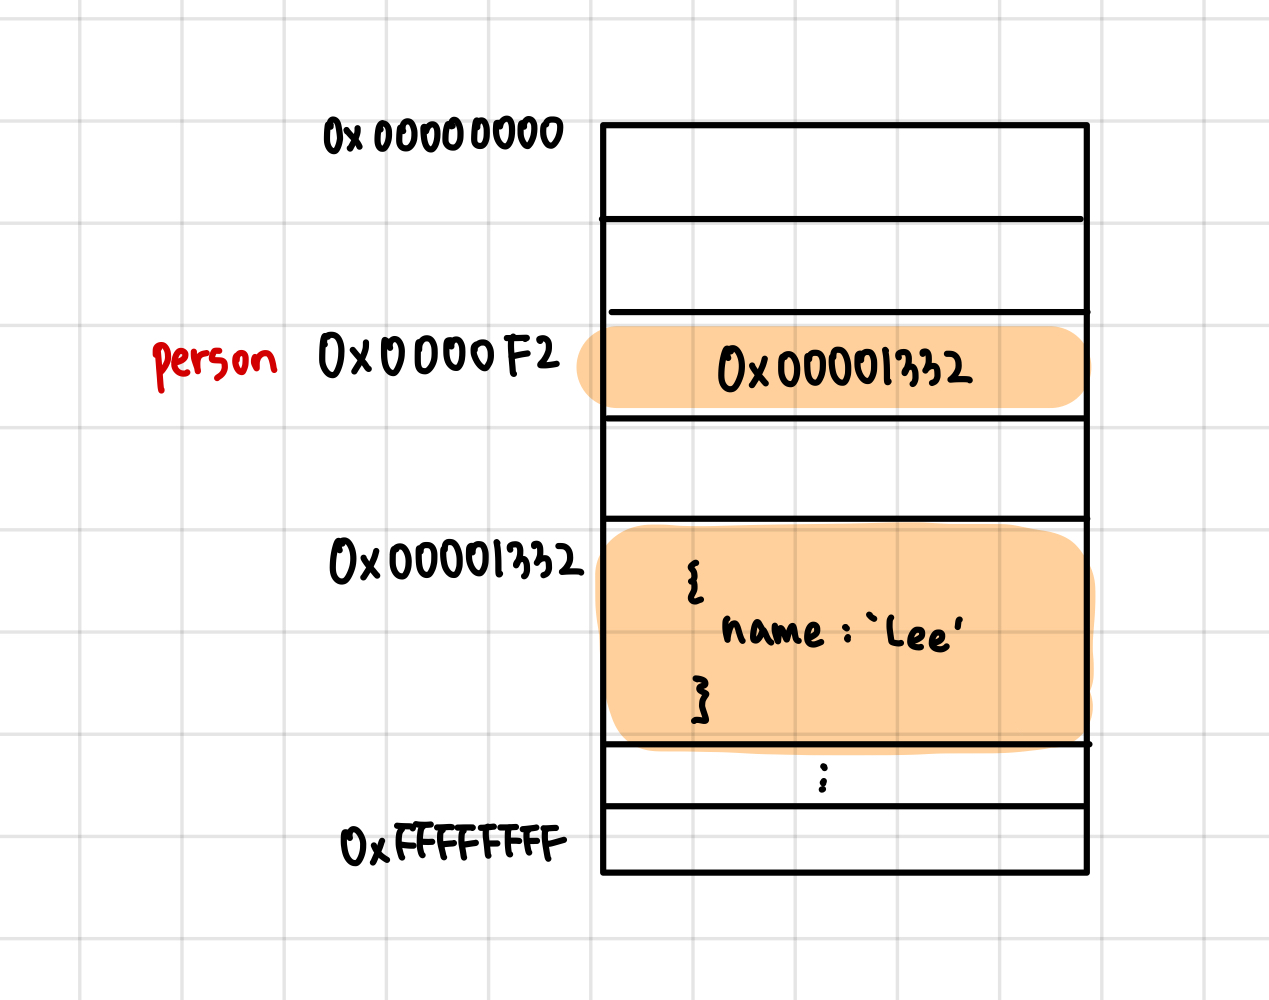 0x00000000
person 0x0000F2 0x00001332
0x00001332
{
name : `Lee'
}
⋮
0xFFFFFFFF